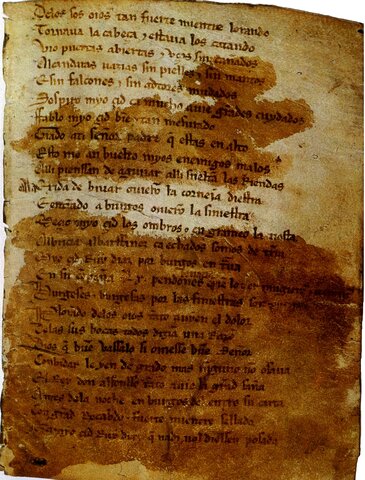 Delos sos oios tan fuerte mientre lorando
Tornaua la cabeça ⁊ estaua los catando
Vio puertas abiertas ⁊ vços sin cañados
Alcandaras uazias sin pielles ⁊ sin mantos
E sin falcones ⁊ sin adtores mudados
Sospiro myo çid ca mucho auie grãdes cuydados
Fablo myo çid bien ⁊ tan mesurado
Grado ati señor padre q̃ estas en alto
Esto me an buelto myos enemigos malos
Alli pienssan de aguiiar alli sueltã las Riendas
Ala exida de biuar ouierõ la corneia diestra
E entrãdo a burgos ouierõ la siniestra
Meçio myo çid los ombros ⁊ en grameo la tiesta
Albriçia albarffanez ca echados somos de tierra
Myo çid Ruy diaz por burgos en traua
En su conpaña Lx pendones
Burgeses ⁊ burgesas por las finiestras son
Plorando delos oios tãto auien el dolor
Delas sus bocas todos dizian una Razõ
Dios q̃ buẽ vassalo si ouiesse buẽ Señor
Conbidar le yen de grado mas ninguno no osaua
El Rey don alfonsso tãto auie la grãd saña
Antes dela noche en burgos del entro su carta
Con grãd Recabdo ⁊ fuerte mientre sellada
Que a myo çid Ruy diaz q̃ nadi nol diessen posada